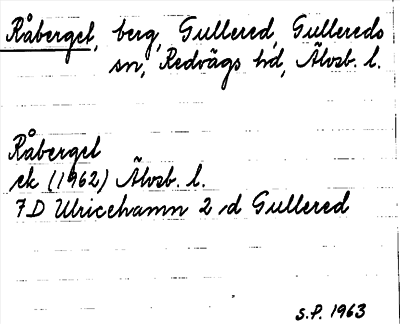 Råberget, berg, Gullered, Gullereds
sn, Redvägs hd, Älvsb. l.
Råberget
ek (1962) Älvsb. l.
7D Ulricehamn 2 d Gullered
S.P. 1963